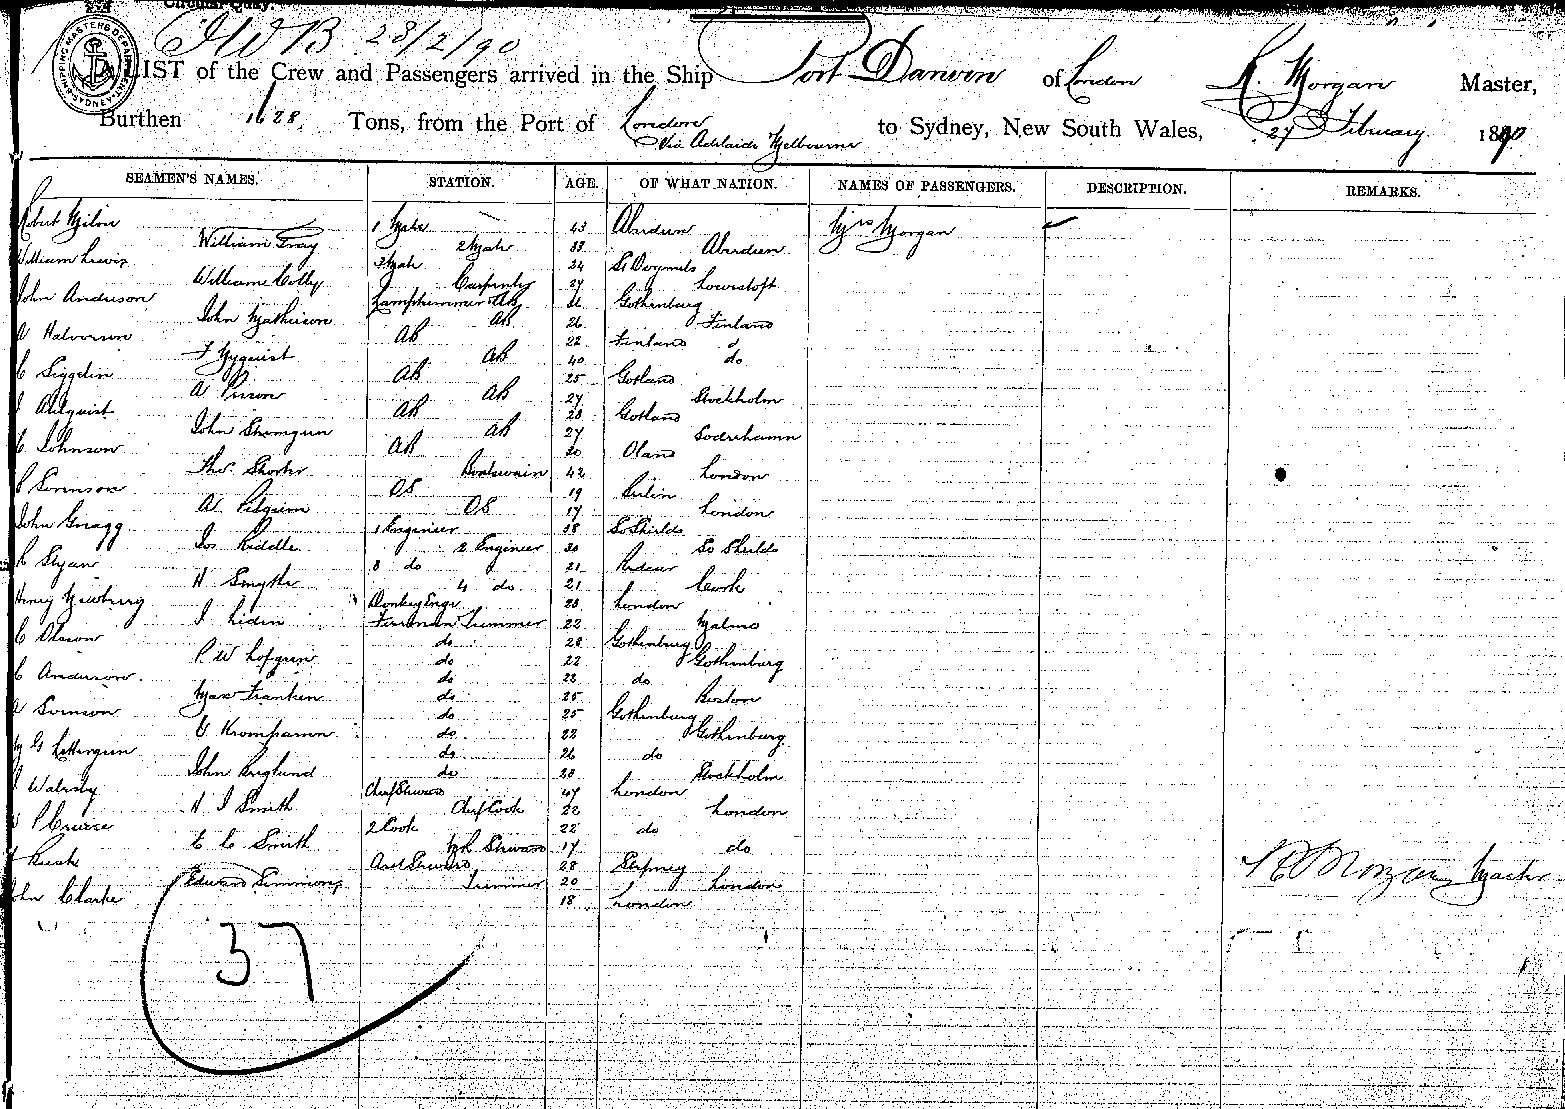 Circular Quay.
JWB 28/2/90
SHIPPING MASTERS DEPARTMENT SYDNEY
LIST of the Crew and Passengers arrived in the Ship Port Darwin of London R. Morgan Master,
Burthen 1628 Tons, from the Port of London to Sydney, New South Wales, 27 February 1890
Via Adelaide Melbourne
SEAMEN'S NAMES. STATION. AGE. OF WHAT NATION. NAMES OF PASSENGERS. DESCRIPTION. REMARKS.
Robert Milne 1 Mate 43 Aberdeen Mrs Morgan
William Gray 2 Mate 33 Aberdeen
William Lewis 3 Mate 24 St
William Colby Carpenter 27 Lowestoft
John Anderson Lamptrimmer AB Gothenburg
John Mathieson AB 26 Finland
A Halvorson AB 22 Finland
F Nyquist AB 40 do
C Siggelin AB 25 Gotland
A Person AB 27 Stockholm
Ahlquist AB 28 Gotland
John AB 27 Soderhamn
C Johnson AB 20 Oland
Thos Shorter Boatswain 42 London
Svenson OS 19
A Pilgrim OS 17 London
John Gragg 1 Engineer 38 So Shields
Jos Riddle 2 Engineer 30 So Shields
R Ryan 3 do 21
H Smythe 4 do 21 Cork
Henry Newberry Donkey Engr 28 London
J Lidin Fireman Trimmer 22 Malmo
C Olsson do 28 Gothenburg
P W Lofgren do 22 Gothenburg
C Anderson do 22 do
Max Franken do 25 Boston
A Svenson do 25 Gothenburg
do 22 Gothenburg
do 26 do
John Berglund do 28 Stockholm
Walmsly Chief Steward 47 London
H J Smith Chief Cook 22 London
2 Cook 22 do
E C Smith Steward 17 do
Rush Asst Steward 28 Stepney
Edward Simmons Trimmer 20 London
John Clarke 18 London
R Morgan Master
37